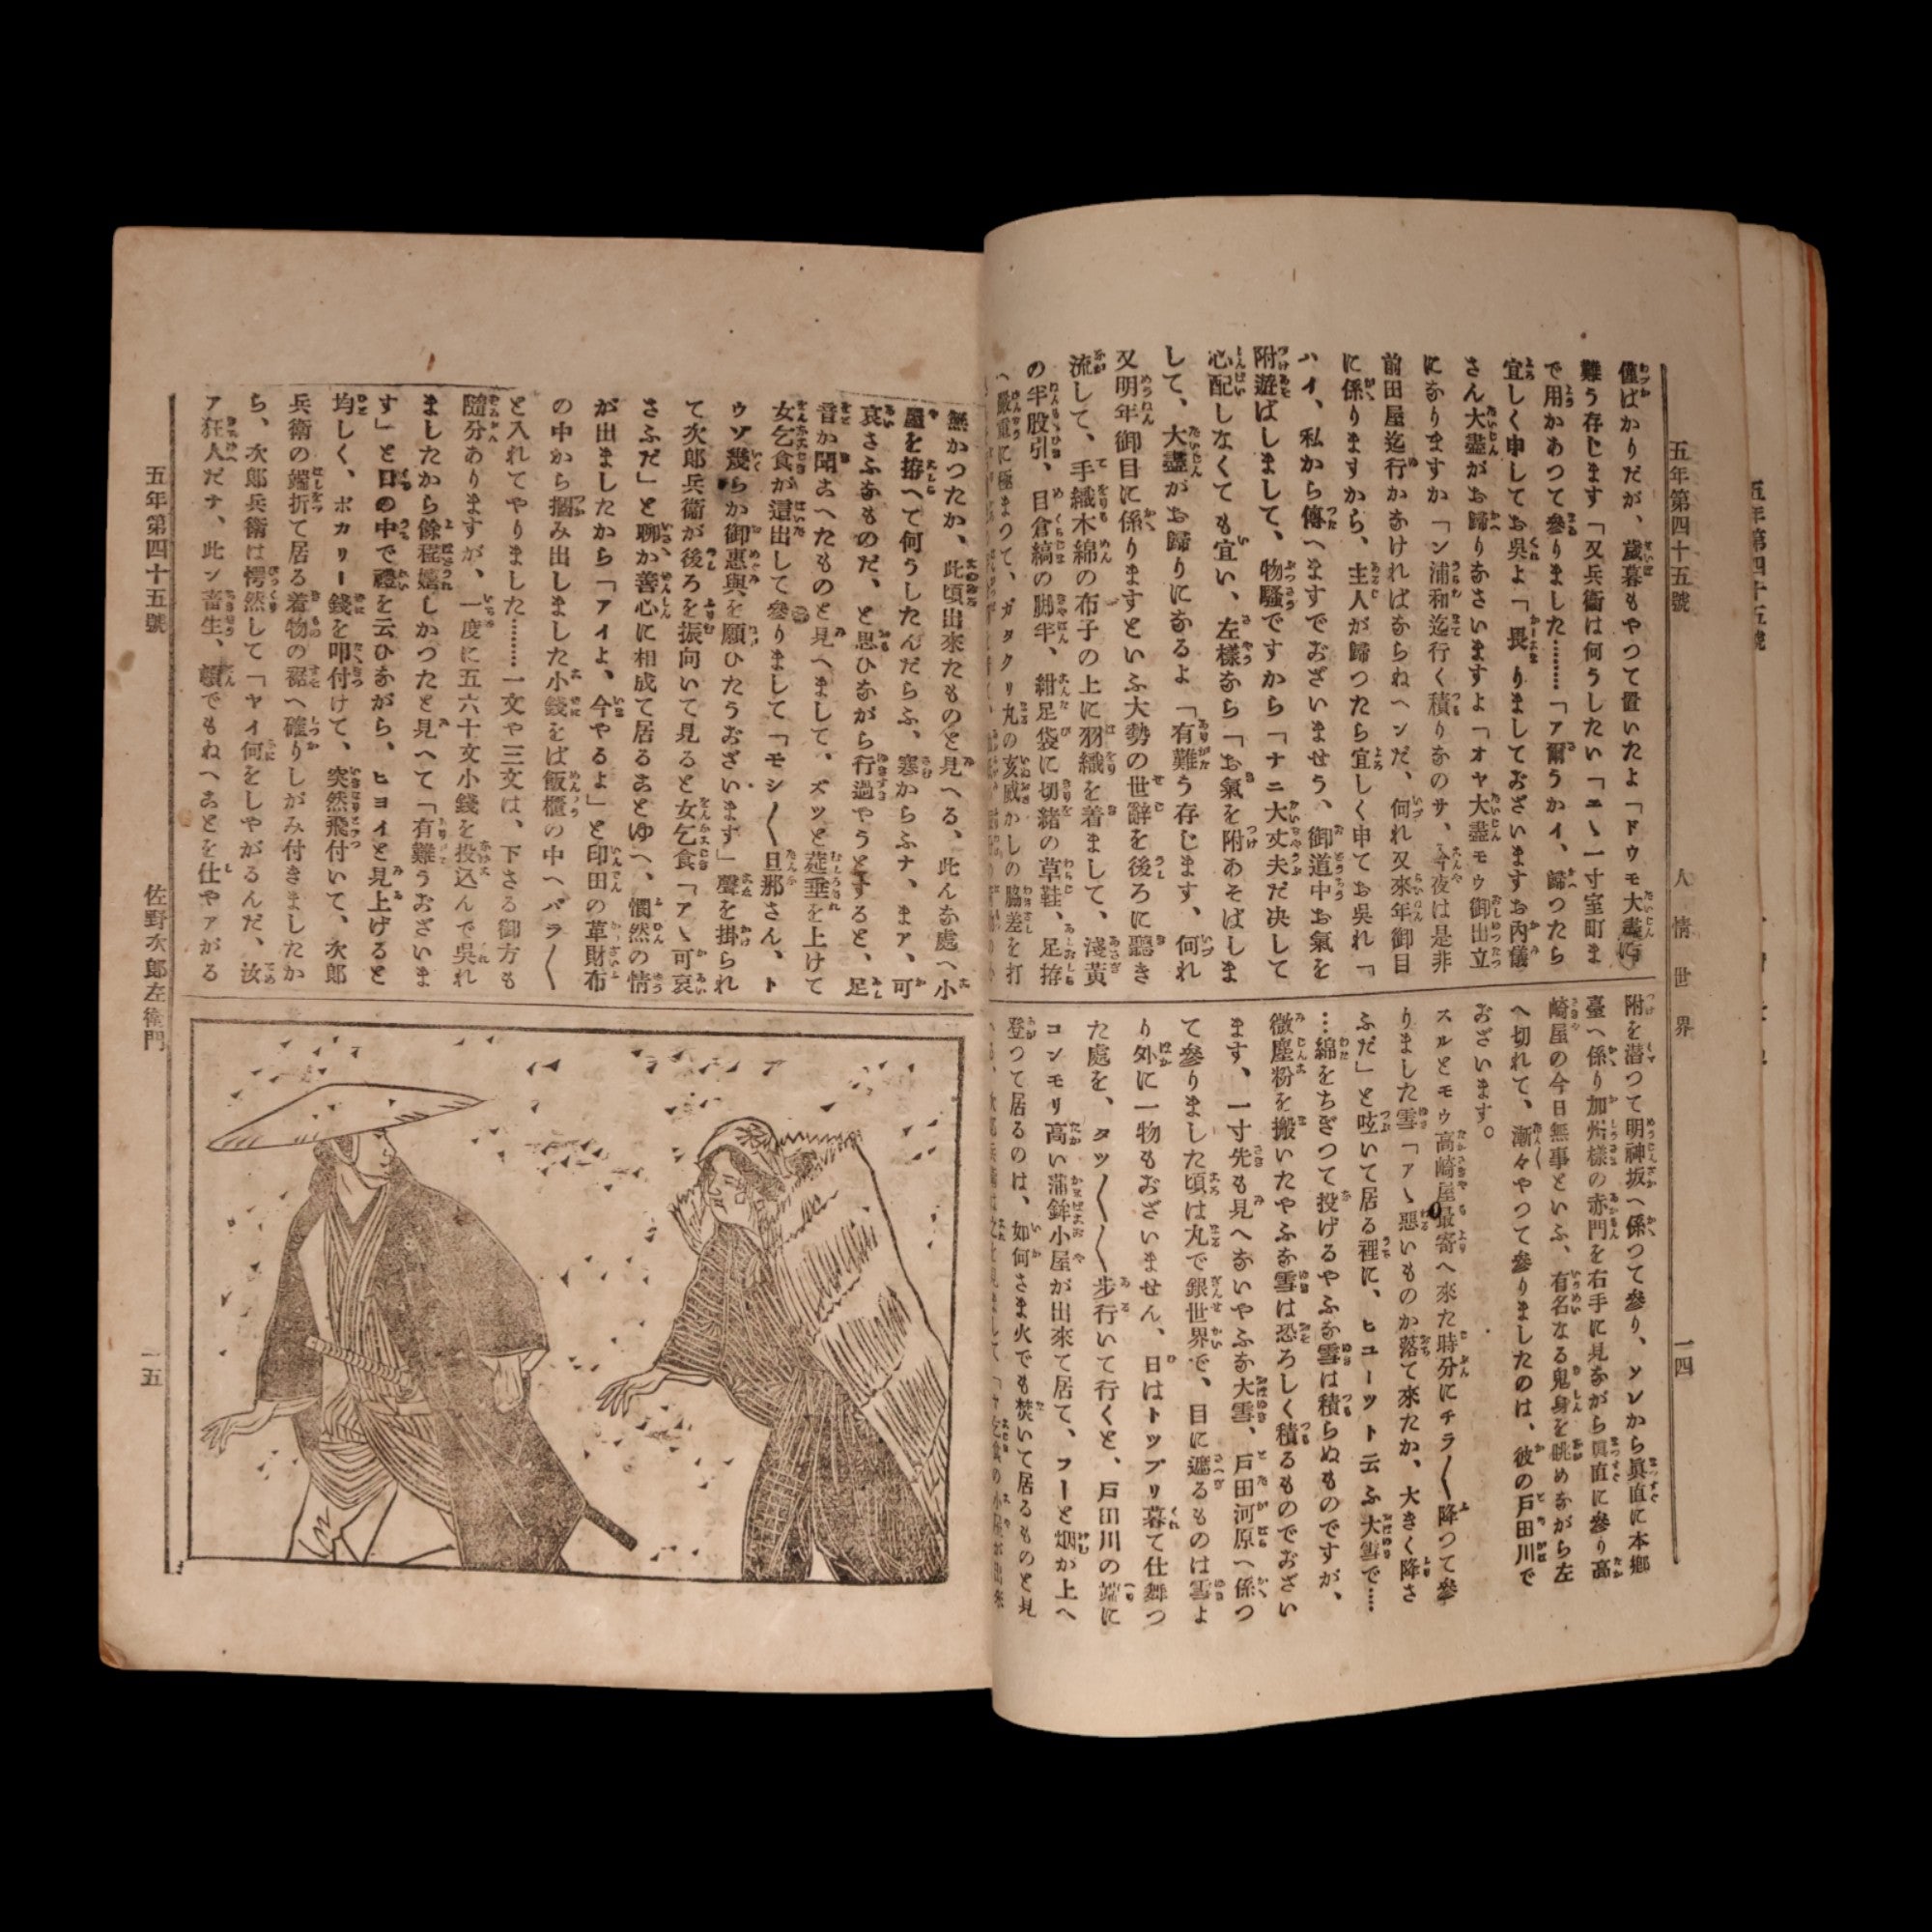 五年第四十五號
人情世界
一四
僅ばかりだが、歳暮もやつて置いたよ「ドウモ大盡に
難う存じます「又兵衞は何うしたい「エヽ一寸室町ま
で用があつて參りました………「ア爾うかイ、歸つたら
宜しく申してお呉よ「畏りましておざいますお內儀
さん大盡がお歸りなさいますよ「オヤ大盡モウ御出立
になりますか「ン浦和迄行く積りなのサ、今夜は是非
前田屋迄行かなければならねヘンだ、何れ又來年御目
に係りますから、主人が歸つたら宜しく申てお呉れ「
ハイ、私から傳へますでおざいませう、御道中お氣を
附遊ばしまして、物騷ですから「ナニ大丈夫だ决して
心配しなくても宜い、左樣なら「お氣を附あそばしま
して、大盡がお歸りになるよ「有難う存じます、何れ
又明年御目に係りますといふ大勢の世辭を後ろに聽き
流して、手織木綿の布子の上に羽織を着まして、淺黃
の半股引、目倉縞の脚半、紺足袋に切緖の草鞋、足拵
へ嚴重に極まつて、ガタクリ丸の亥威かしの脇差を打
附を潜つて明神坂へ係つて參り、ソレから眞直に本鄕
臺へ係り加州樣の赤門を右手に見ながら眞直に參り高
崎屋の今日無事といふ、有名なる鬼身を眺めながら左
へ切れて、漸々やつて參りましたのは、彼の戸田川で
おざいます。
スルとモウ高崎屋最寄へ來た時分にチラ〱降つて參
りました雪「アヽ惡いものか落て來たか、大きく降さ
ふだ」と呟いて居る裡に、ヒユーツト云ふ大雪で……
…綿をちぎつて投げるやふな雪は積らぬものですが、
微塵粉を搬いたやふな雪は恐ろしく積るものでおざい
ます、一寸先も見へないやふな大雪、戸田河原へ係つ
て參りました頃は丸で銀世界で、目に遮るものは雪よ
り外に一物もおざいません、日はトツプリ暮て仕舞つ
た處を、タツ〱〱步行いて行くと、戸田川の端に
コンモリ高い蒲鉾小屋が出來て居て、フーと烟が上へ
登つて居るのは、如何さま火でも焚いて居るものと見
無かつたか、此頃出來たものと見へる、此んな處へ小
屋を拵へて何うしたんだらふ、寒からふナ、まア、可
哀さふなものだ、と思ひながら行過やうとすると、足
音か聞こへたものと見へまして、ズツと莚垂を上けて
女乞食が這出して參りまして「モシ〱旦那さん、ト
ウゾ幾らか御惠與を願ひたうおざいます」聲を掛られ
て次郎兵衞が後ろを振向いて見ると女乞食「アヽ可哀
さふだ」と聊か善心に相成て居るこどゆへ、憫然の情
が出ましたから「アイよ、今やるよ」と印田の草財布
の中から摑み出しました小錢をば飯櫃の中へバラ〱
と入れてやりました………一文や三文は、下さる御方も
隨分ありますが、一度に五六十文小錢を投込んで呉れ
ましたから餘程嬉しかつたと見へて「有難うおざいま
す」と口の中で禮を云ひながら、ヒヨイと見上げると
均しく、ポカリー錢を叩付けて、突然飛付いて、次郎
兵衞の端折て居る着物の裾へ確りしがみ付きましたか
ら、次郎兵衞は愕然して「ヤイ何をしやがるんだ、汝
ア狂人だナ、此ン畜生、巓でもねへことを仕やアがる
五年第四十五號
佐野次郎左衛門
一五